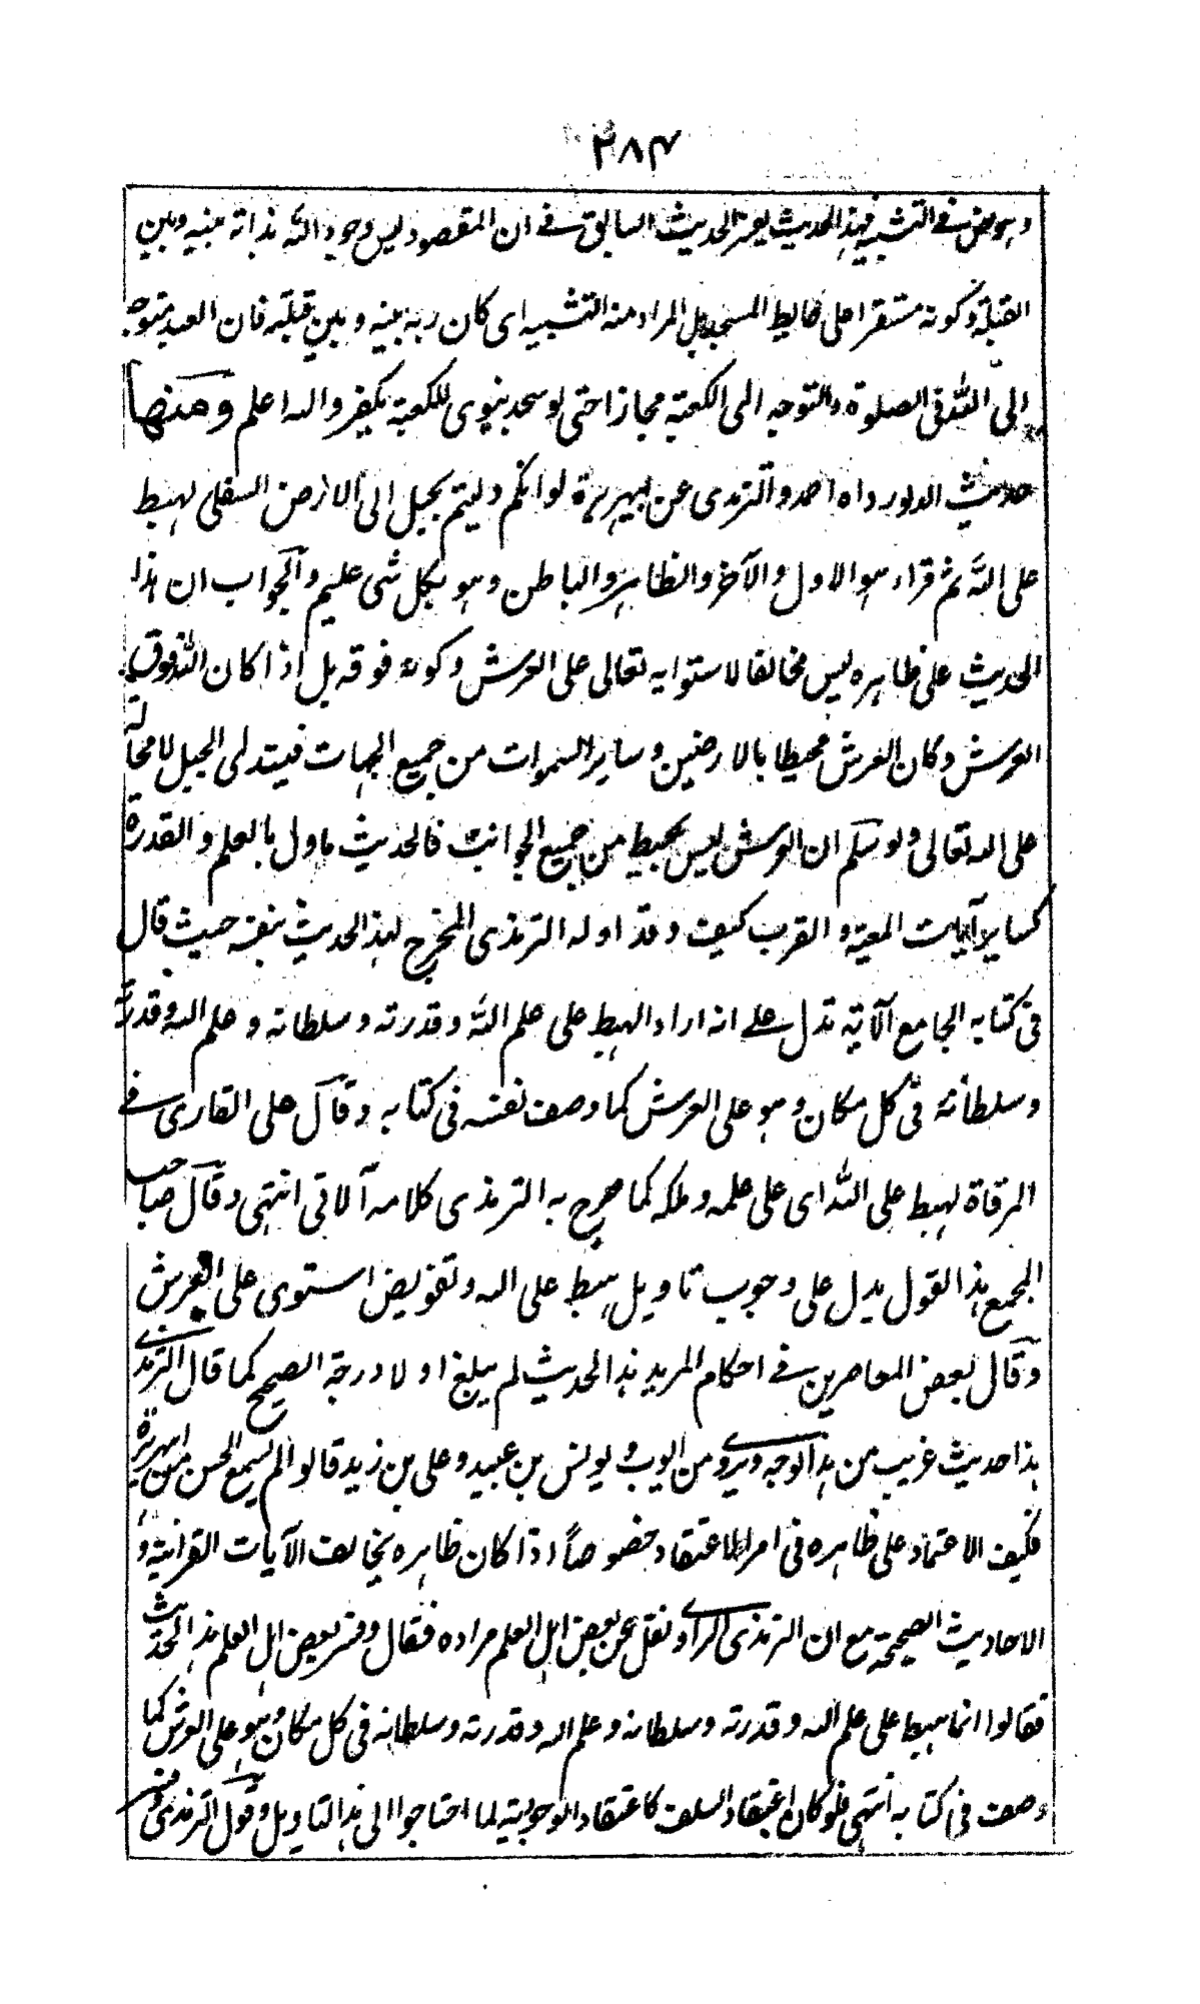 ٢٨٤
وهو نص في التشبيه فهذا الحديث يفسر الحديث السابق في ان المقصود ليس وجود الله بذاته بينه وبين
القبلة وكونه مستقرا على حايط المسجد بل المراد منه التشبيه اى كان ربه بينه وبين قبلته فان العبد متوجه
الى الله فى الصلوة والتوجه الى الكعبة مجازا حتى لو سجد ينوى للكعبة يكفر والله اعلم ومنها
حديث الدلو رواه احمد والترمذى عن ابيهريرة لو انكم دليتم بحبل الى الارض السفلى لهبط
على الله ثم قراء هو الاول والآخر والظاهر والباطن وهو بكل شى عليم والجواب ان هذا
الحديث على ظاهره ليس مخالفا لاستوايه تعالى على العرش وكونه فوقه بل اذا كان الله فوق
العرش وكان العرش محيطا بالارضين وساير السموات من جميع الجهات فيتدلى الحبل لا محالة
على الله تعالى ولو سلم ان العرش ليس بمحيط من جميع الجوانب فالحديث ماول بالعلم والقدرة
كساير آيات المعية والقرب كيف وقد اوله الترمذى المخرج لهذا الحديث بنفسه حيث قال
فى كتابه الجامع الآية تدل على انه اراد الهبط على علم الله وقدرته وسلطانه وعلم الله وقدرته
وسلطانه فى كل مكان وهو على العرش كما وصف نفسه فى كتابه وقال على القارى في
المرقاة لهبط على الله اى على علمه وملكه كما صرح به الترمذى كلامه آلاتى انتهى وقال صاحب
المجمع هذا القول يدل على وجوب تاويل هبط على الله وتفويض استوى على العرش
وقال بعض المعاصرين في احكام المريد هذا الحديث لم يبلغ اولا درجة الصحيح كما قال الترمذى
هذا حديث غريب من هذا الوجه ويروى من ايوب ويونس بن عبيد وعلى بن زيد قالوا لم يسمع الحسن من ابيهريرة
فكيف الاعتماد على ظاهره فى امر الاعتقاد خصوصاً اذا كان ظاهره يخالف الآيات القرانية و
الاحاديث الصحيحة مع ان الترمذى الراوى نقل عن بعض اهل العلم مراده فقال وفسر بعض اهل العلم هذا الحديث
فقالوا انما هبط على علم الله وقدرته وسلطانه وعلم الله وقدرته وسلطانه فى كل مكان وهو على العرش كما
وصف فى كتابه انتهى فلو كان اعتقاد السلف كاعتقاد الوجوبية لما احتاجوا الى هذا التاويل وقول الترمذى وفسر